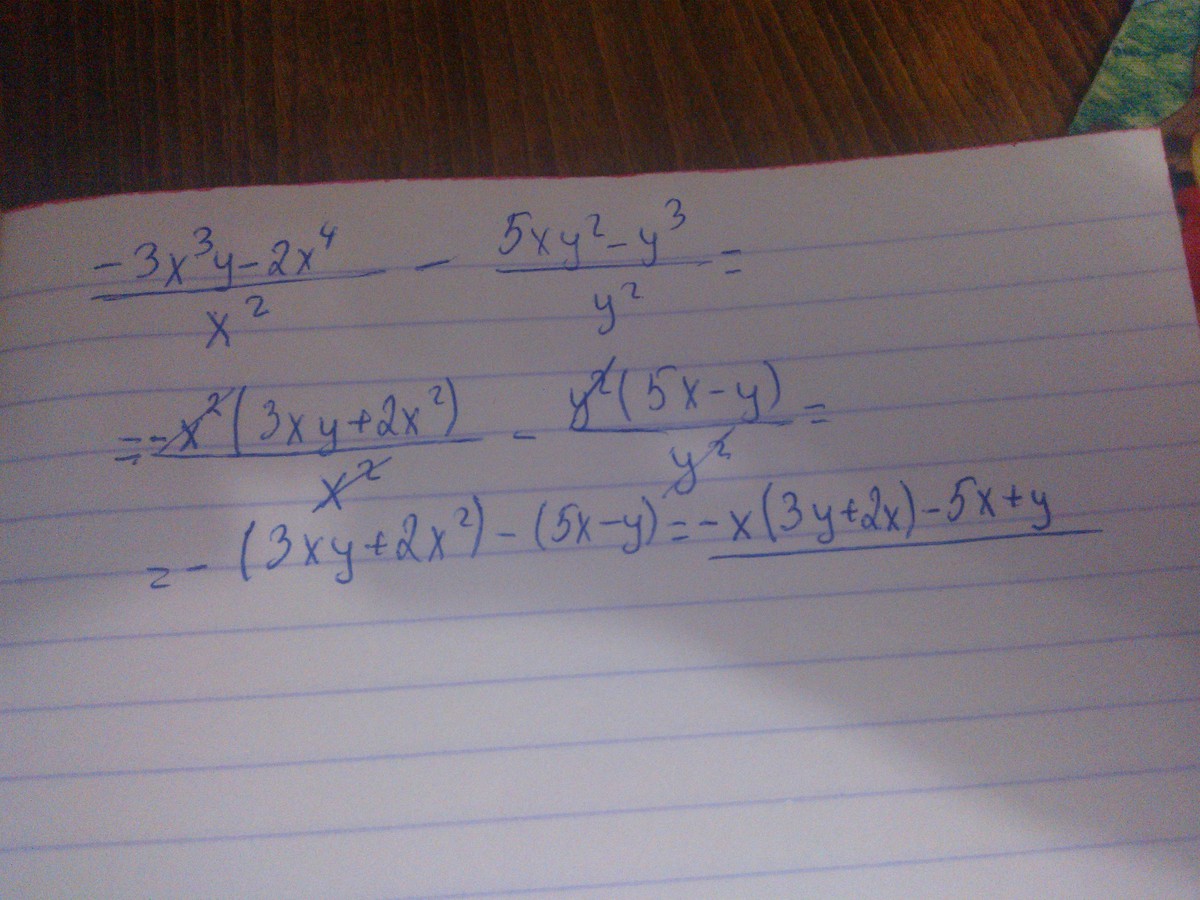 (-3x³y-2x⁴)/x² - (5xy²-y³)/y² =
= -x²(3xy+2x²)/x² - y²(5x-y)/y² =
= -(3xy+2x²)-(5x-y)=-x(3y+2x)-5x+y